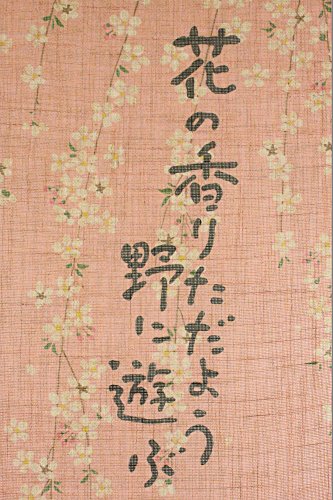 花の香りただよう
野に遊ぶ